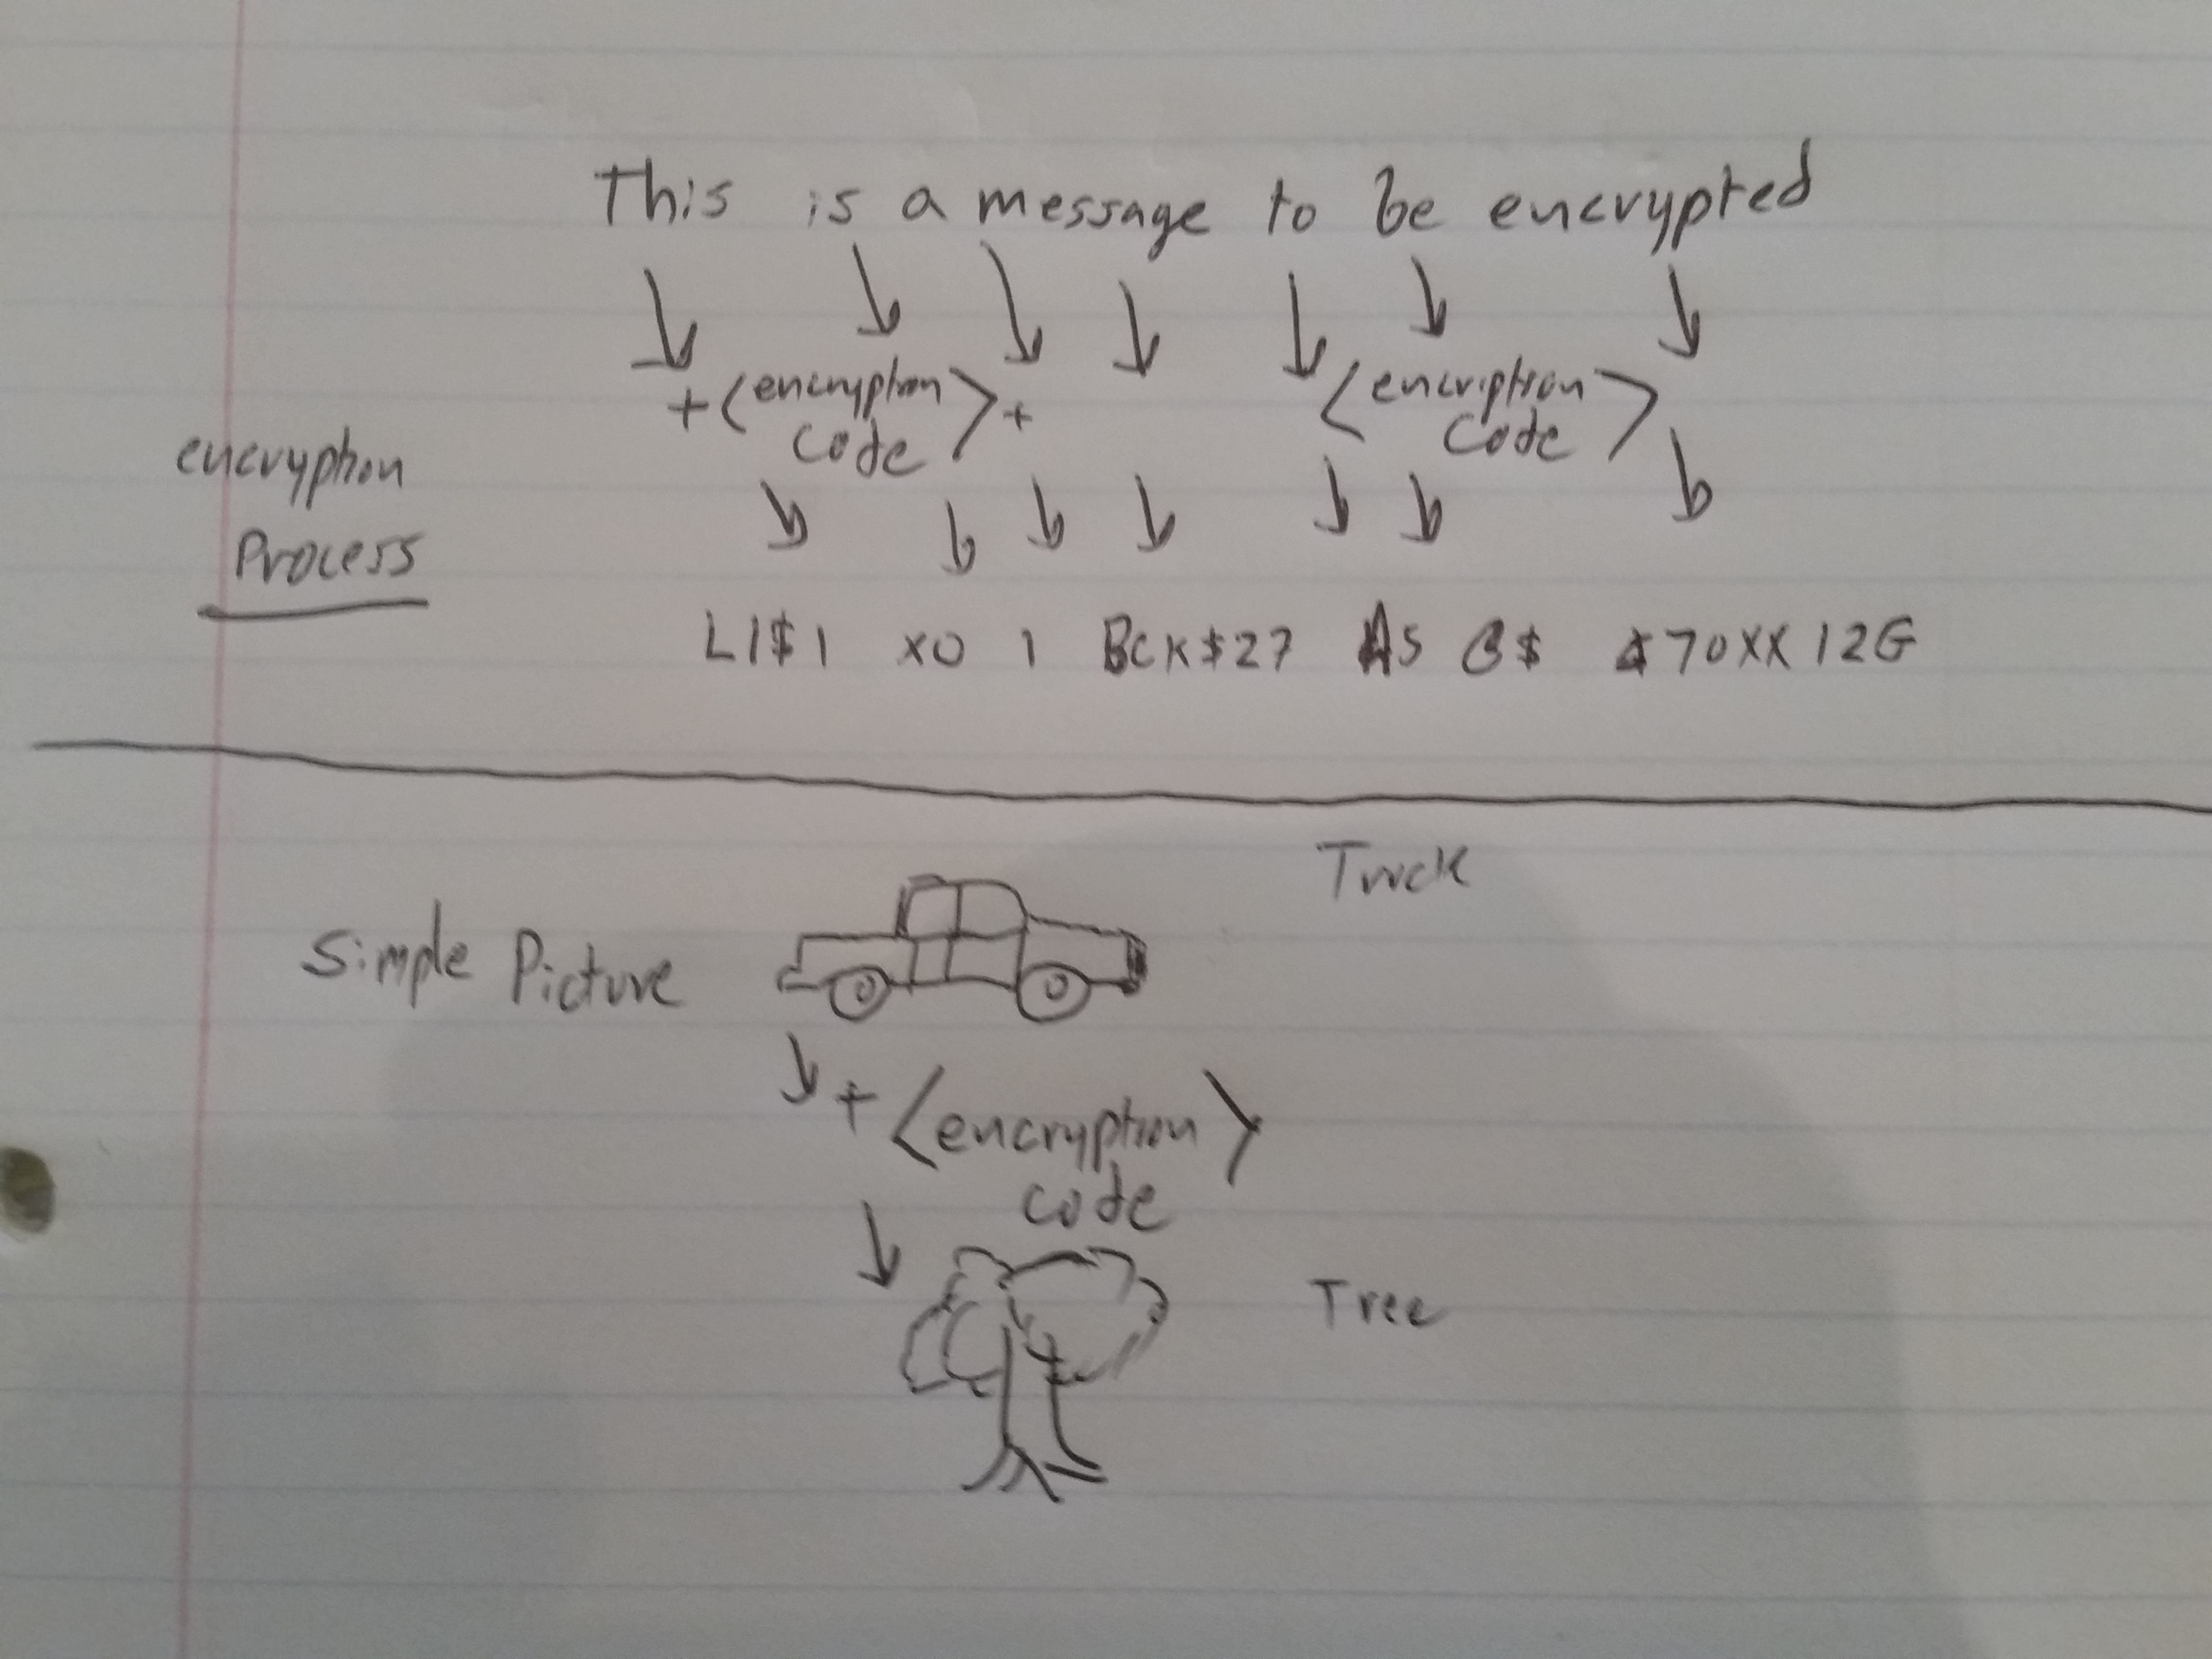 This is a message to be encrypted
+ <encryption code> +
<encription code>
encryption
Process
L1$1 XO 1 BCK$27 AS B$ 470XX12G
Truck
Simple Picture
+ <encryption
code>
Tree